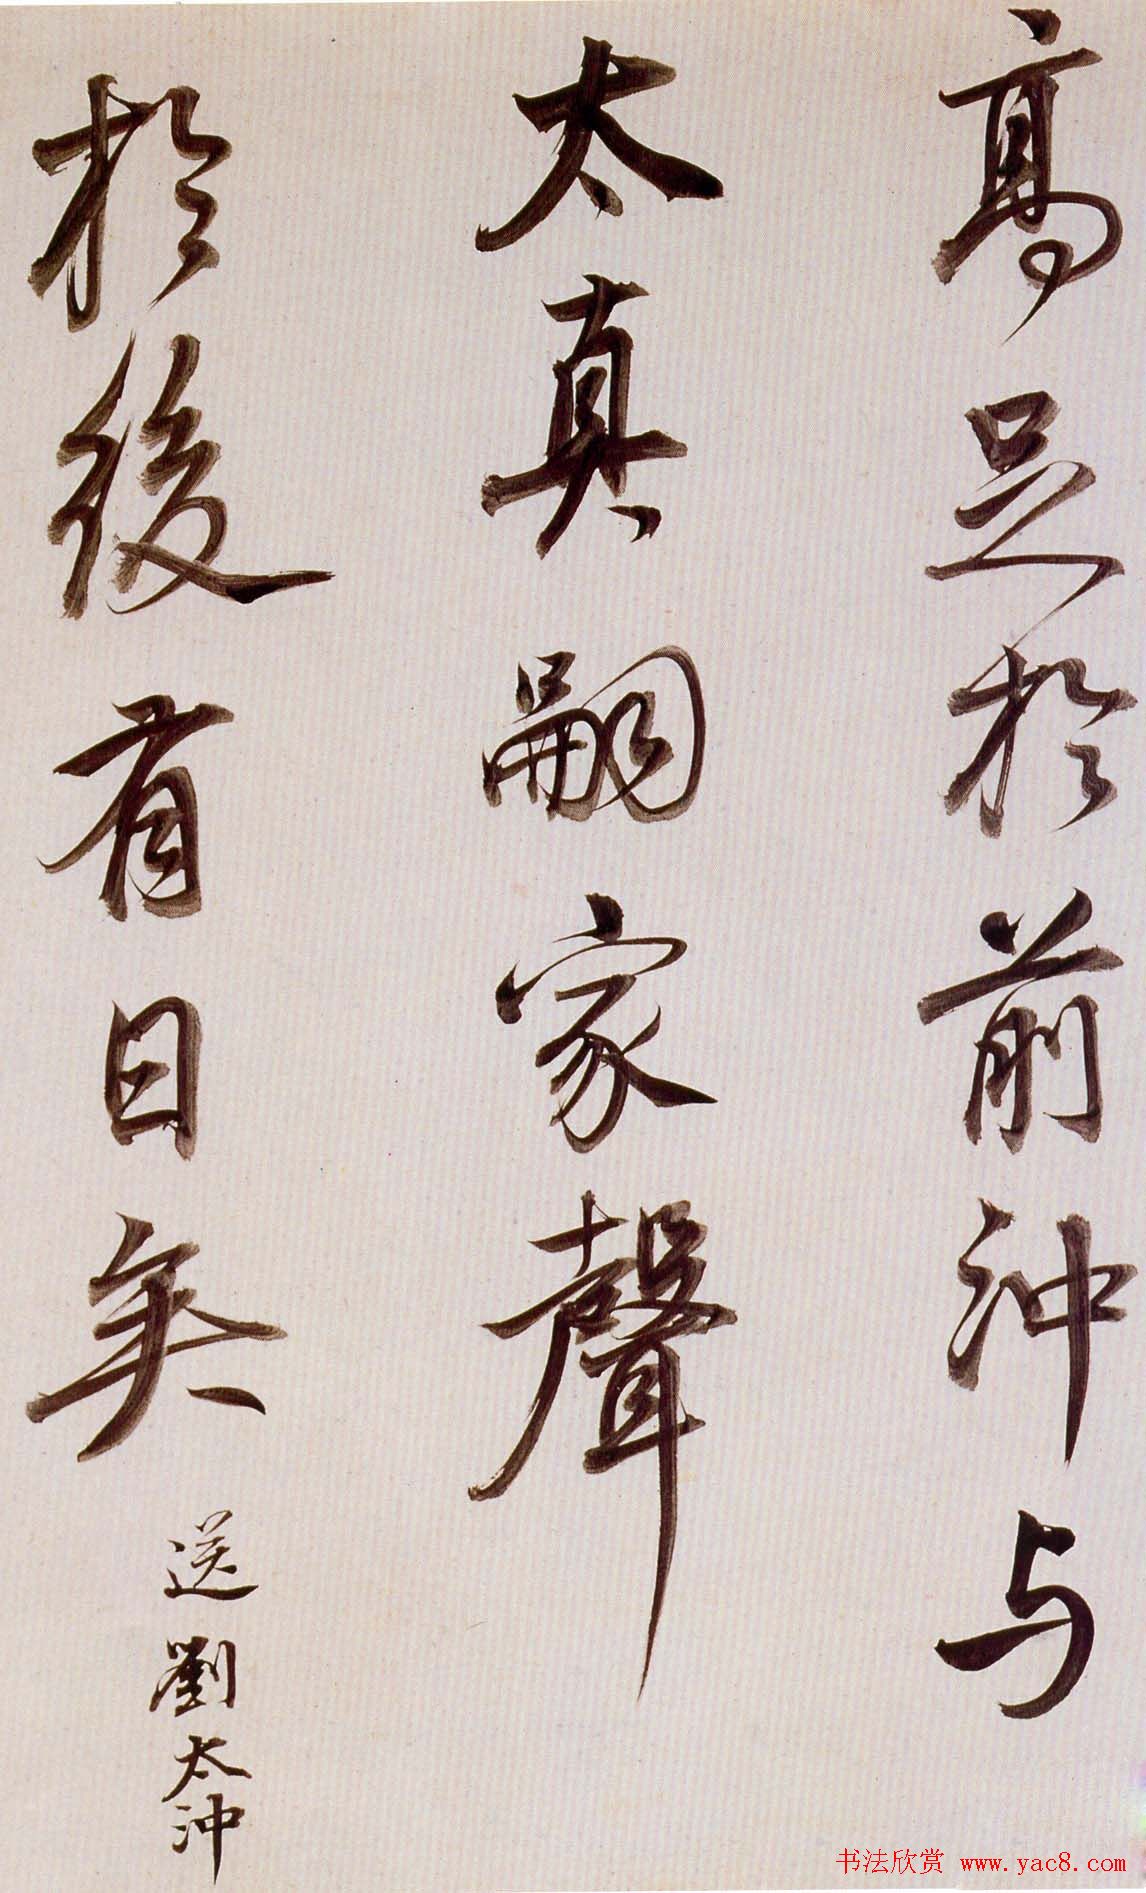 高足於前沖与
太真嗣家聲
於後有日矣
送劉太沖
书法欣赏 www.yac8.com